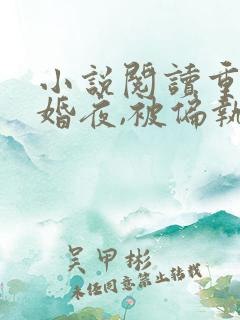 小说阅读重
婚夜,被偏执
吴甲彬
未经同意禁止转载